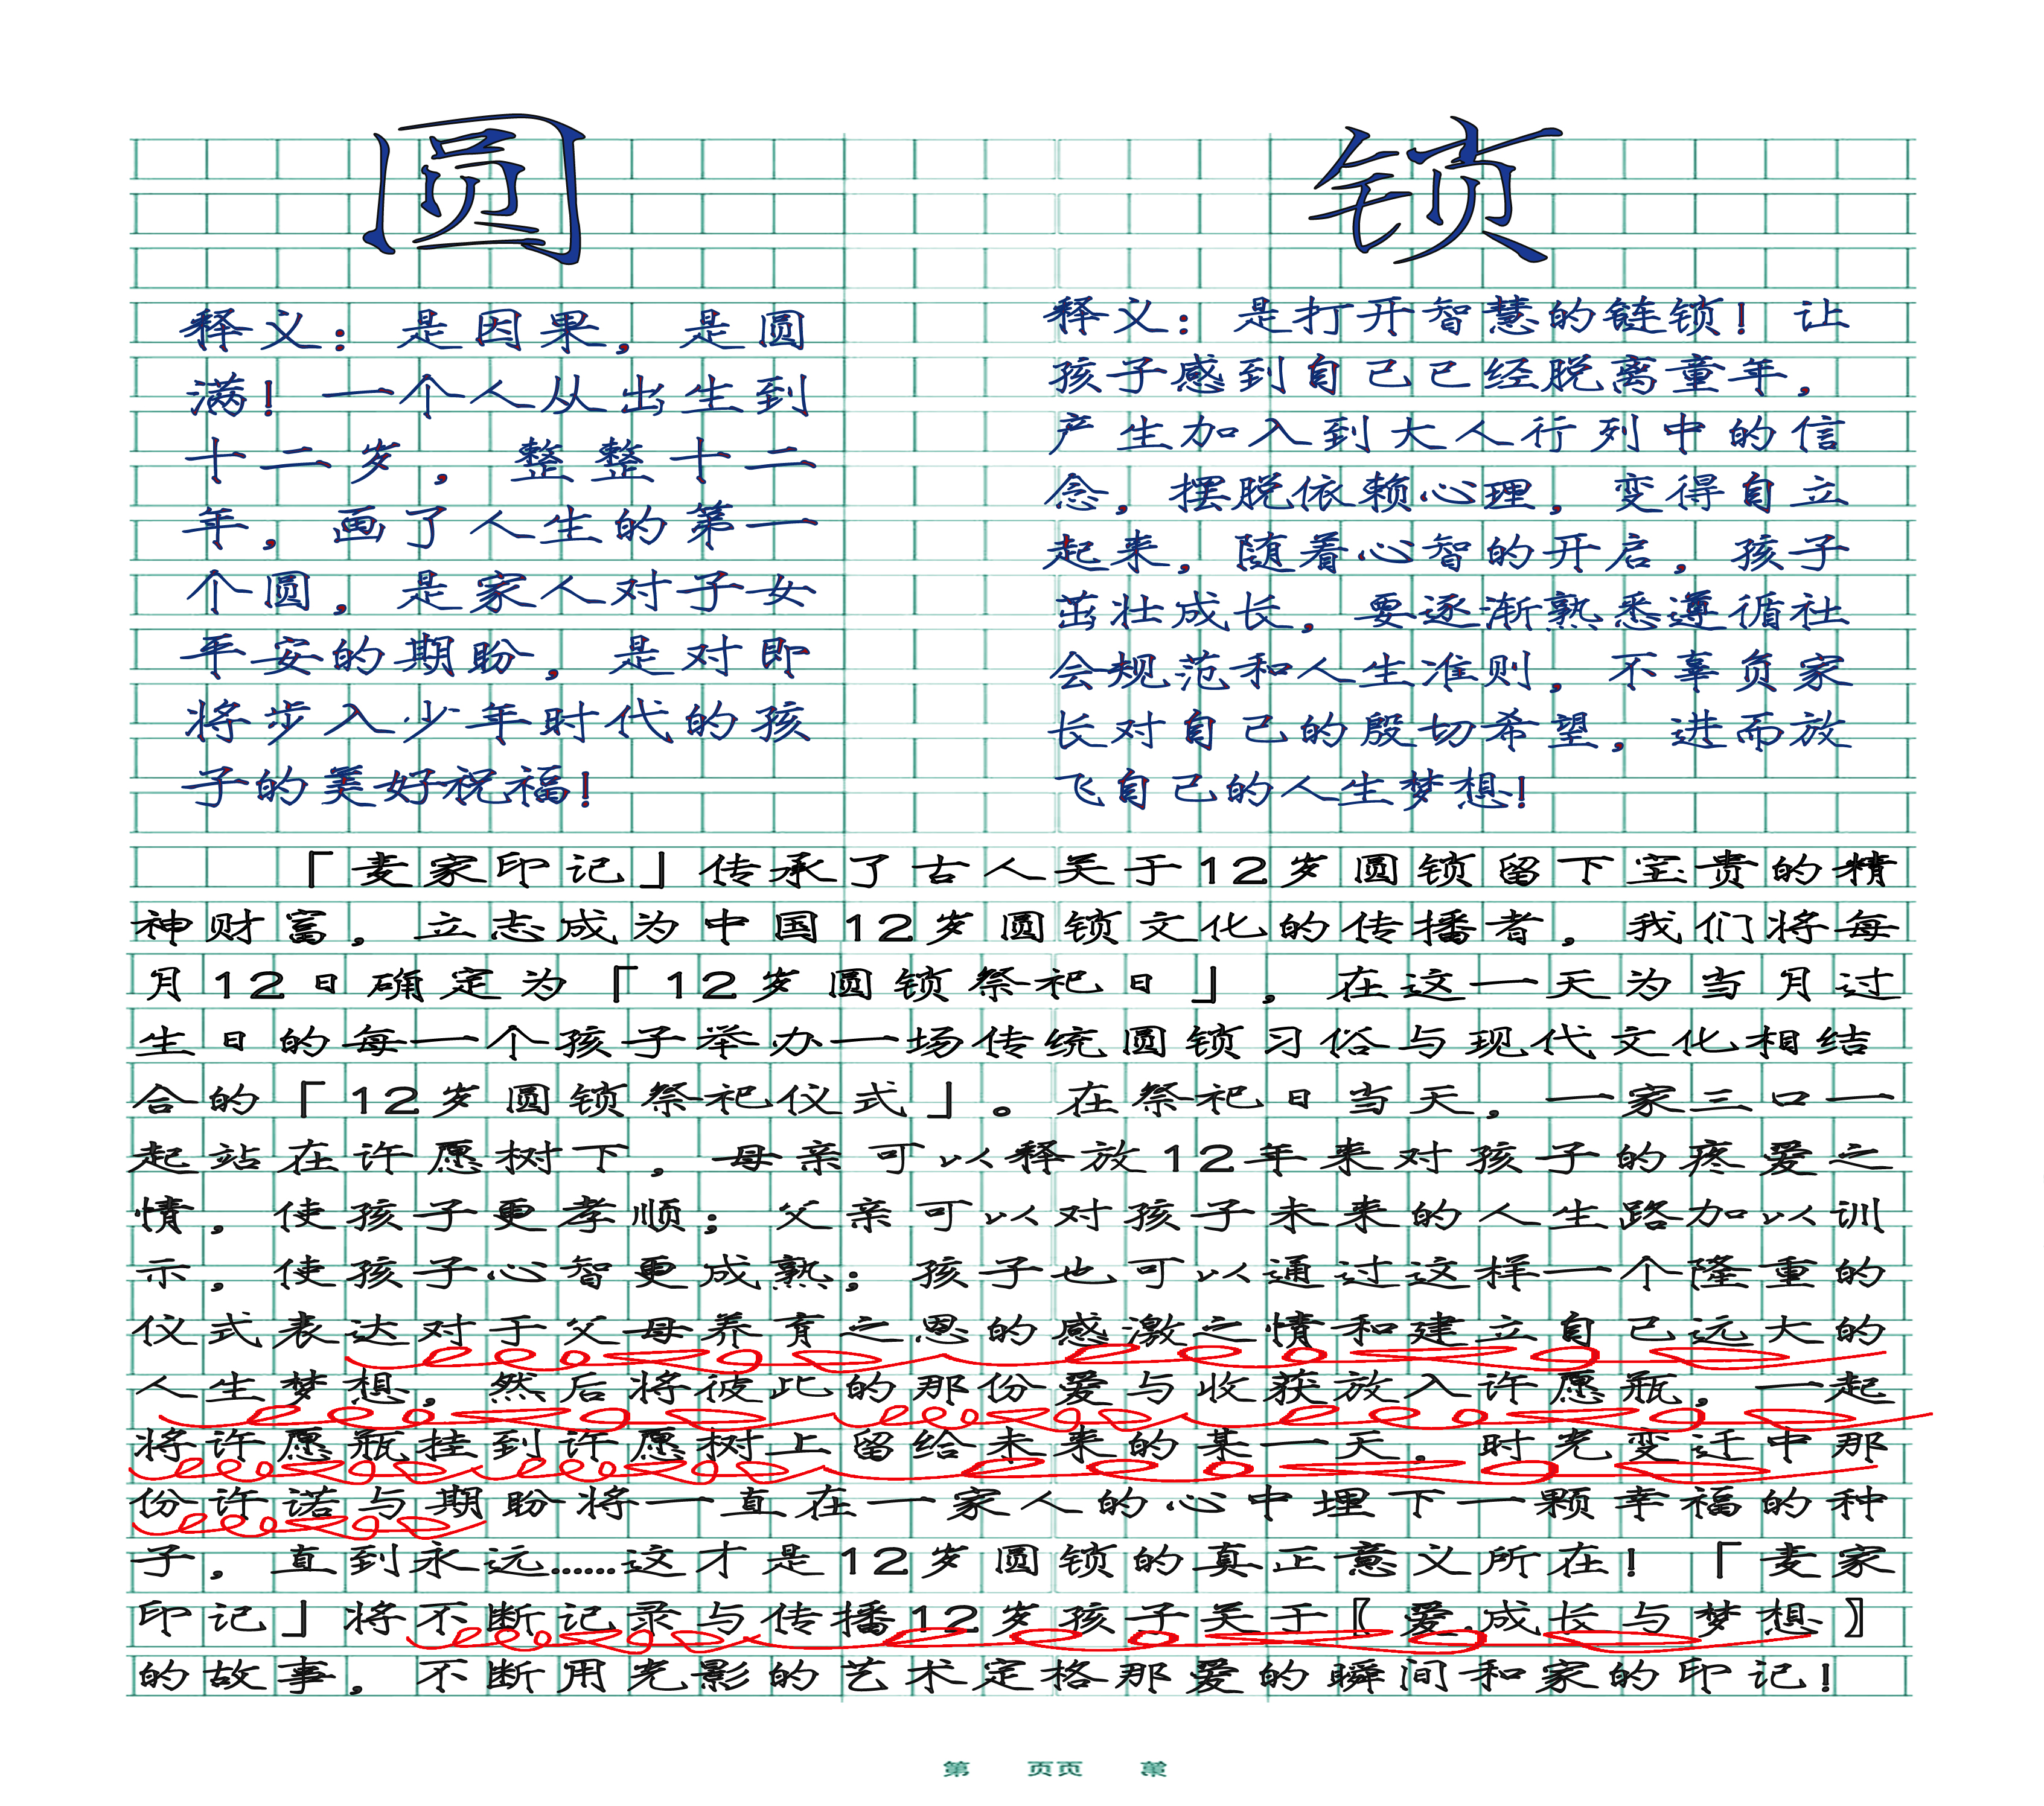 圆
释义：是因果，是圆
满！一个人从出生到
十二岁，整整十二
年，画了人生的第一
个圆，是家人对子女
平安的期盼，是对即
将步入少年时代的孩
子的美好祝福！
锁
释义：是打开智慧的链锁！让
孩子感到自己已经脱离童年，
产生加入到大人行列中的信
念，摆脱依赖心理，变得自立
起来，随着心智的开启，孩子
茁壮成长，要逐渐熟悉遵循社
会规范和人生准则，不辜负家
长对自己的殷切希望，进而放
飞自己的人生梦想！
「麦家印记」传承了古人关于12岁圆锁留下宝贵的精
神财富，立志成为中国12岁圆锁文化的传播者，我们将每
月12日确定为「12岁圆锁祭祀日」，在这一天为当月过
生日的每一个孩子举办一场传统圆锁习俗与现代文化相结
合的「12岁圆锁祭祀仪式」。在祭祀日当天，一家三口一
起站在许愿树下，母亲可以释放12年来对孩子的疼爱之
情，使孩子更孝顺；父亲可以对孩子未来的人生路加以训
示，使孩子心智更成熟；孩子也可以通过这样一个隆重的
仪式表达对于父母养育之恩的感激之情和建立自己远大的
人生梦想，然后将彼此的那份爱与收获放入许愿瓶，一起
将许愿瓶挂到许愿树上留给未来的某一天。时光变迁中那
份许诺与期盼将一直在一家人的心中埋下一颗幸福的种
子，直到永远……这才是12岁圆锁的真正意义所在！「麦家
印记」将不断记录与传播12岁孩子关于〖爱.成长与梦想〗
的故事，不断用光影的艺术定格那爱的瞬间和家的印记！
第 页页 第